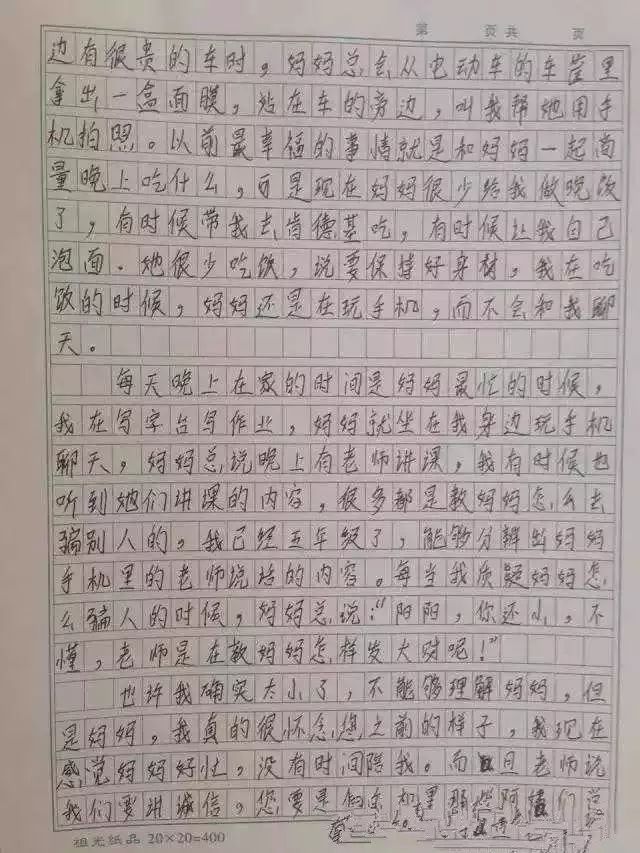 第 页共 页
边有很贵的车时，妈妈总会从电动车的车筐里
拿出一盒面膜，站在车的旁边，叫我帮她用手
机拍照。以前最幸福的事情就是和妈妈一起商
量晚上吃什么，可是现在妈妈很少给我做晚饭
了，有时候带我去肯德基吃，有时候让我自己
泡面。她很少吃饭，说要保持好身材，我在吃
饭的时候，妈妈还是在玩手机，而不会和我聊
天。
每天晚上在家的时间是妈妈最忙的时候，
我在写字台写作业，妈妈就坐在我身边玩手机
聊天，妈妈总说晚上有老师讲课，我有时候也
听到她们讲课的内容，很多都是教妈妈怎么去
骗别人的。我已经五年级了，能够分辨出妈妈
手机里的老师说话的内容。每当我质疑妈妈怎
么骗人的时候，妈妈总说：“阳阳，你还小，不
懂，老师是在教妈妈怎样发大财呢！”
也许我确实太小了，不能够理解妈妈，但
是妈妈，我真的很怀念您之前的样子，我现在
感觉妈妈好忙，没有时间陪我。而且老师说
我们要讲诚信，您要是和手机里那些阿姨们
祖光纸品 20×20=400